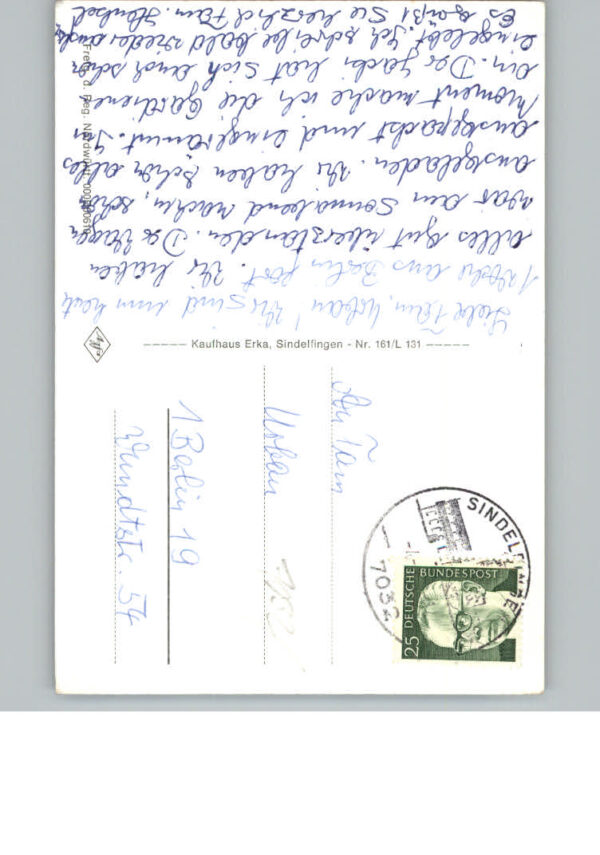 Liebe Fam. Urban! Wir sind nun heute
1 Woche aus Berlin fort. Wir haben
alles gut überstanden. Der Wagen
war am Sonnabend nachm. schon
ausgeladen. Wir haben schon alles
ausgepackt und eingeräumt. Im
Moment mache ich die Gardienen
an. Der Jacki hat sich auch schon
eingelebt. Ich schreibe bald wieder
Es grüßt Sie herzlich Fam.
Freig. d. Reg. Nordwürtt.
Agfa
Kaufhaus Erka, Sindelfingen - Nr. 161/L 131
An Fam
Urban
1 Berlin 19
Wundtstr. 54
SINDELFINGEN
7032
25 DEUTSCHE BUNDESPOST